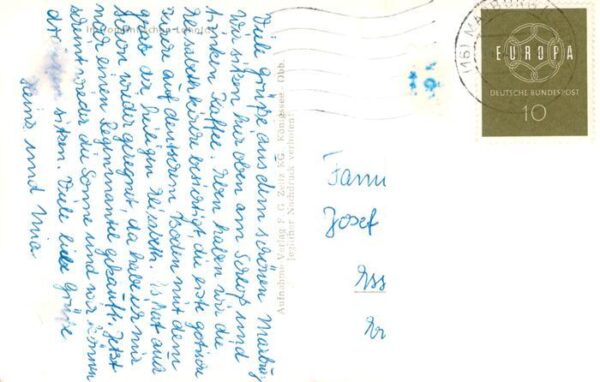 Viele Grüße aus dem schönen Marburg
Wir sitzen hier oben am Schloß und
trinken Kaffee. Eben haben wir die
Elisabethkirche besichtigt, die erste gotische
Kirche auf deutschem Boden mit dem
Grab der heiligen Elisabeth. Es hat auch
schon wieder geregnet, da habe ich mir
nur einen Regenmantel gekauft. Jetzt
scheint wieder die Sonne und wir können
draußen sitzen. Viele liebe Grüße
Heins und Mia
Aufnahme Verlag F. G. Zeitz KG., Königssee, Obb.
Jeglicher Nachdruck verboten!
Fam
Josef
Ess
(16) MARBURG
EUROPA
DEUTSCHE BUNDESPOST
10